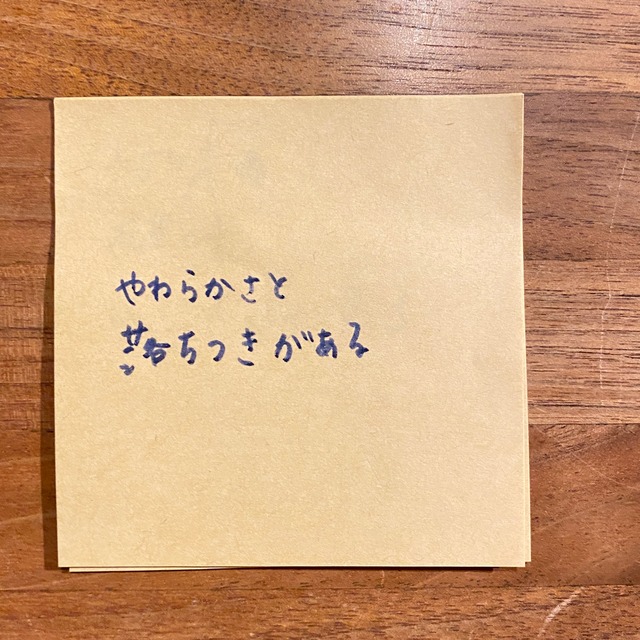 やわらかさと
落ちつきがある